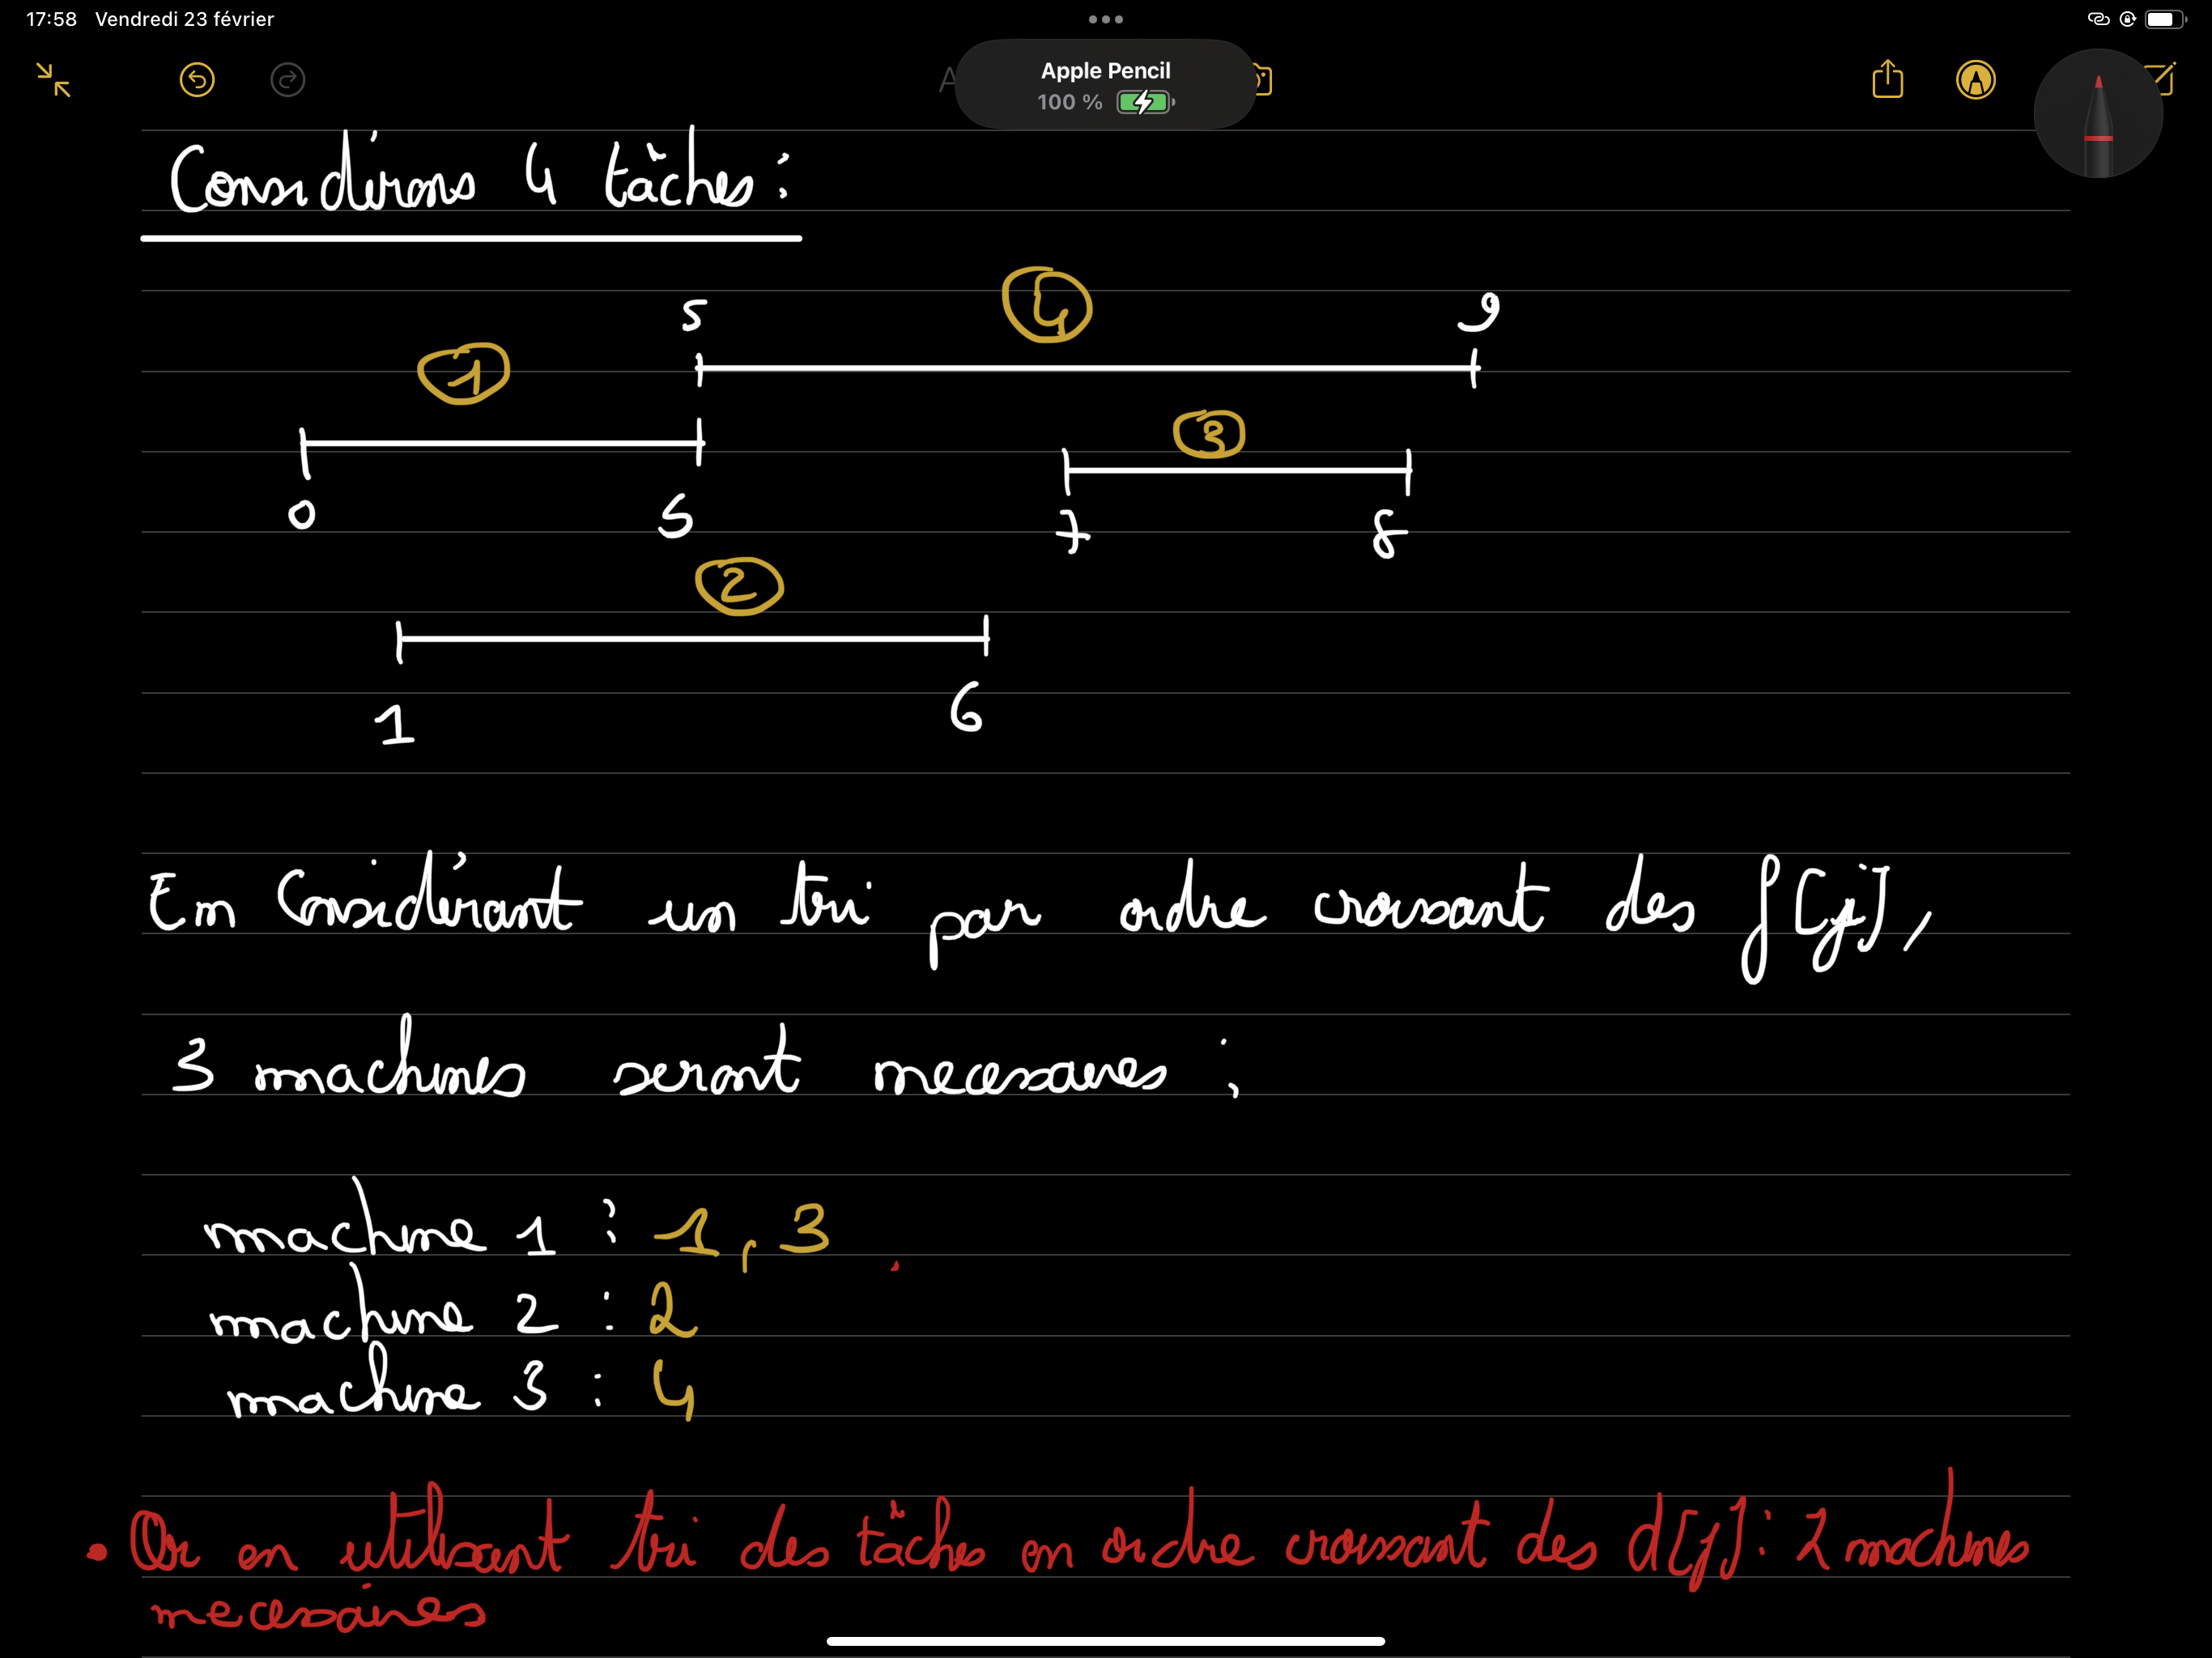 17:58 Vendredi 23 février
Apple Pencil
100 %
Considérons 4 tâches :
4
5 9
1
3
0 5 7 8
2
1 6
En Considérant un tri par ordre croissant des f[j],
3 machines seront necessaires :
machine 1 : 1, 3
machine 2 : 2
machine 3 : 4
• Or en utilisant tri des tâches en ordre croissant des d[j] : 2 machines
necessaires